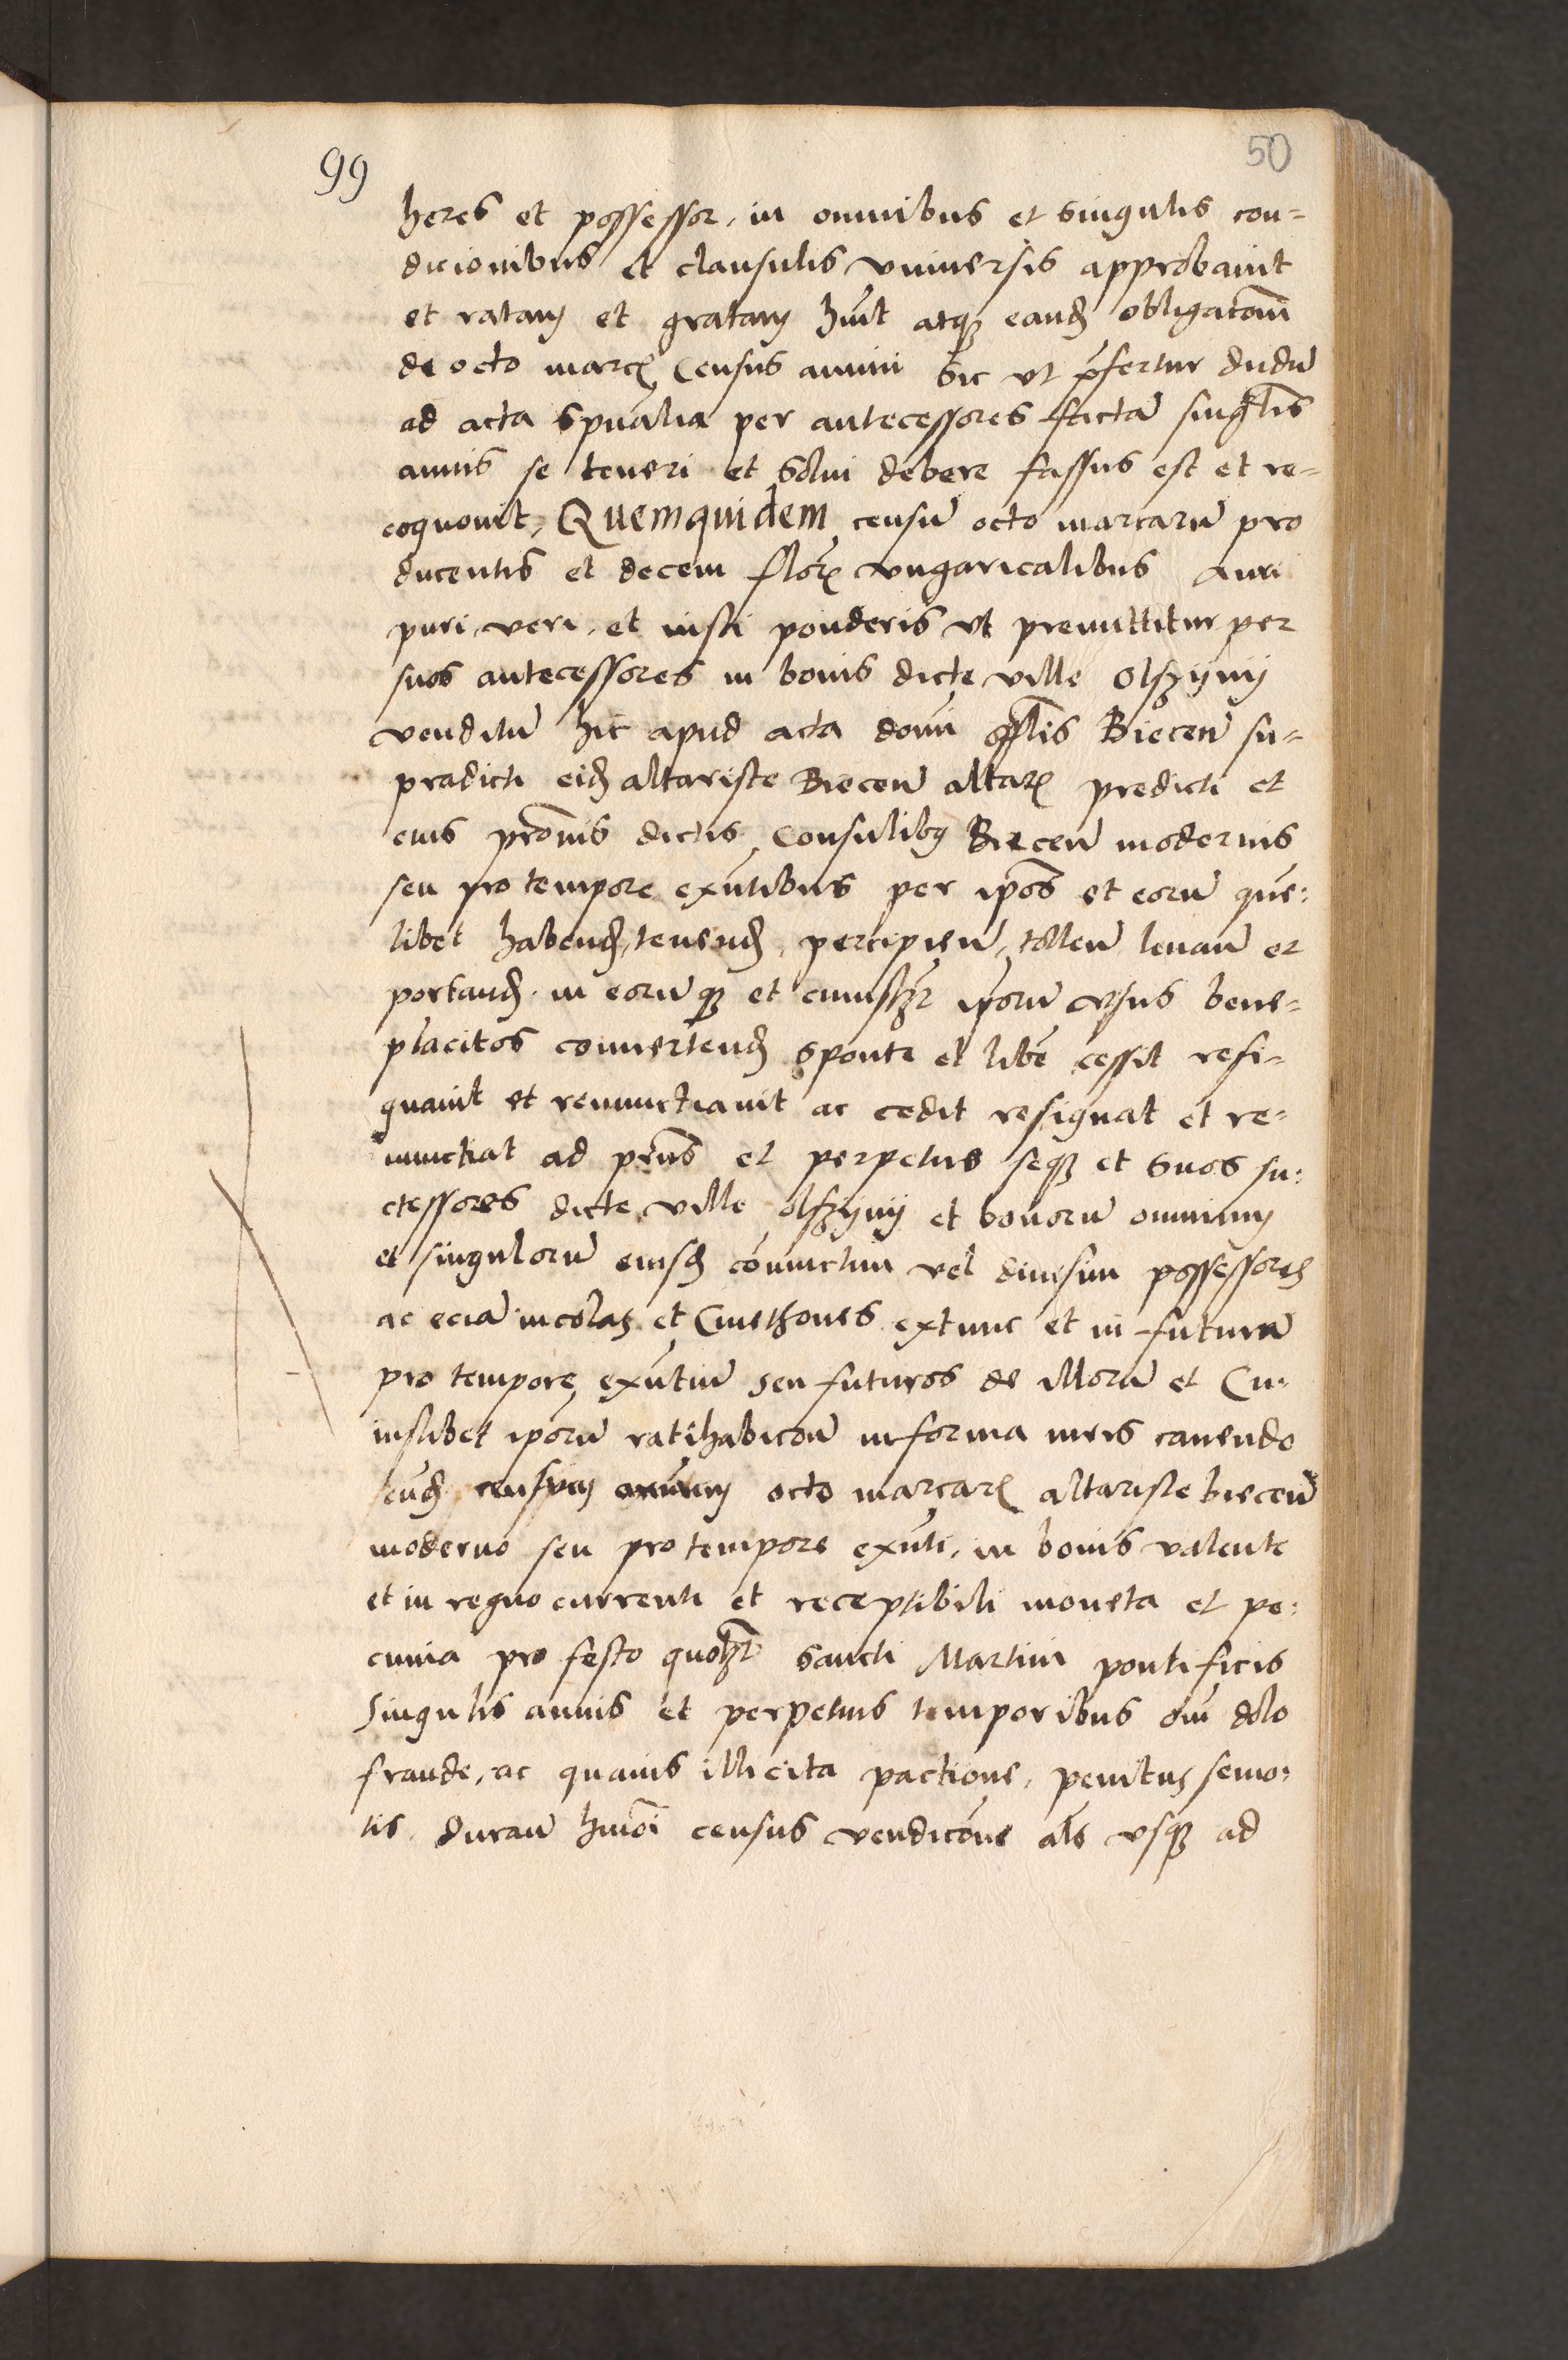 99
50
heres et possessor, in omnibus et singulis con-
dicionibus et clausulis vniuersis approbauit
et ratam et gratam hu̅it atq̢ eand obligatōm
de octo marc̢ Census annui sic vt p̄fertur dudū
ad acta sp̄ualia per antecessores factā singl̄is
annis se teneri et solui debere fassus est et re-
cognouit, Quemquidem censū octo marcarū pro
ducentis et decem flor̄ vngaricalibus auri
puri, veri, et iusti ponderis vt premittitur per
suos antecessores in bonis dicte ville Olszijnij
venditū hic apud acta domī offlis Biecen̄ su-
pradicti eid altariste Biecen̄ altar̄ predicti et
eius prōnis dictis Consulibꝫ Biecen̄ modernis
seu pro tempore exn̄tibus per ip̄os et eorū que-
libet habend, tenend, percipien̄, tollen̄ leuan̄ et
portand. in eorū q̢ et cuiuslꝫt ip̄orū vsus bene-
placitos conuertend sponte et libē cessit resi-
gnauit et renunctiauit ac cedit resignat et re-
nunctiat ad prn̄s et perpetue seq̢ et suos su-
ctessores dicte ville olszijnij et bonorū omnium
et singulorū eiusd coniunctim vel diuisim possessores
ac eciā incolas et Cmethones extunc et in futurū
pro tempore exn̄tiū seu futuros de illorū et Cu-
iuslibet ip̄orū ratihabicōn̄ in forma iuris cauendo
eund censum annuum octo marcar̄ altariste biecen̄
moderno seu pro tempore exn̄ti, in bonis valente
et in regno currenti et receptibili moneta et pe-
cunia pro festo quolꝫt sancti Martini pontificis
Singulis annis et perpetuis temporibus om̄i dolo
fraude, ac quauis illicita pactione, penitus semo-
tis. duran̄ hmōi census vendicōne als vsq̢ ad